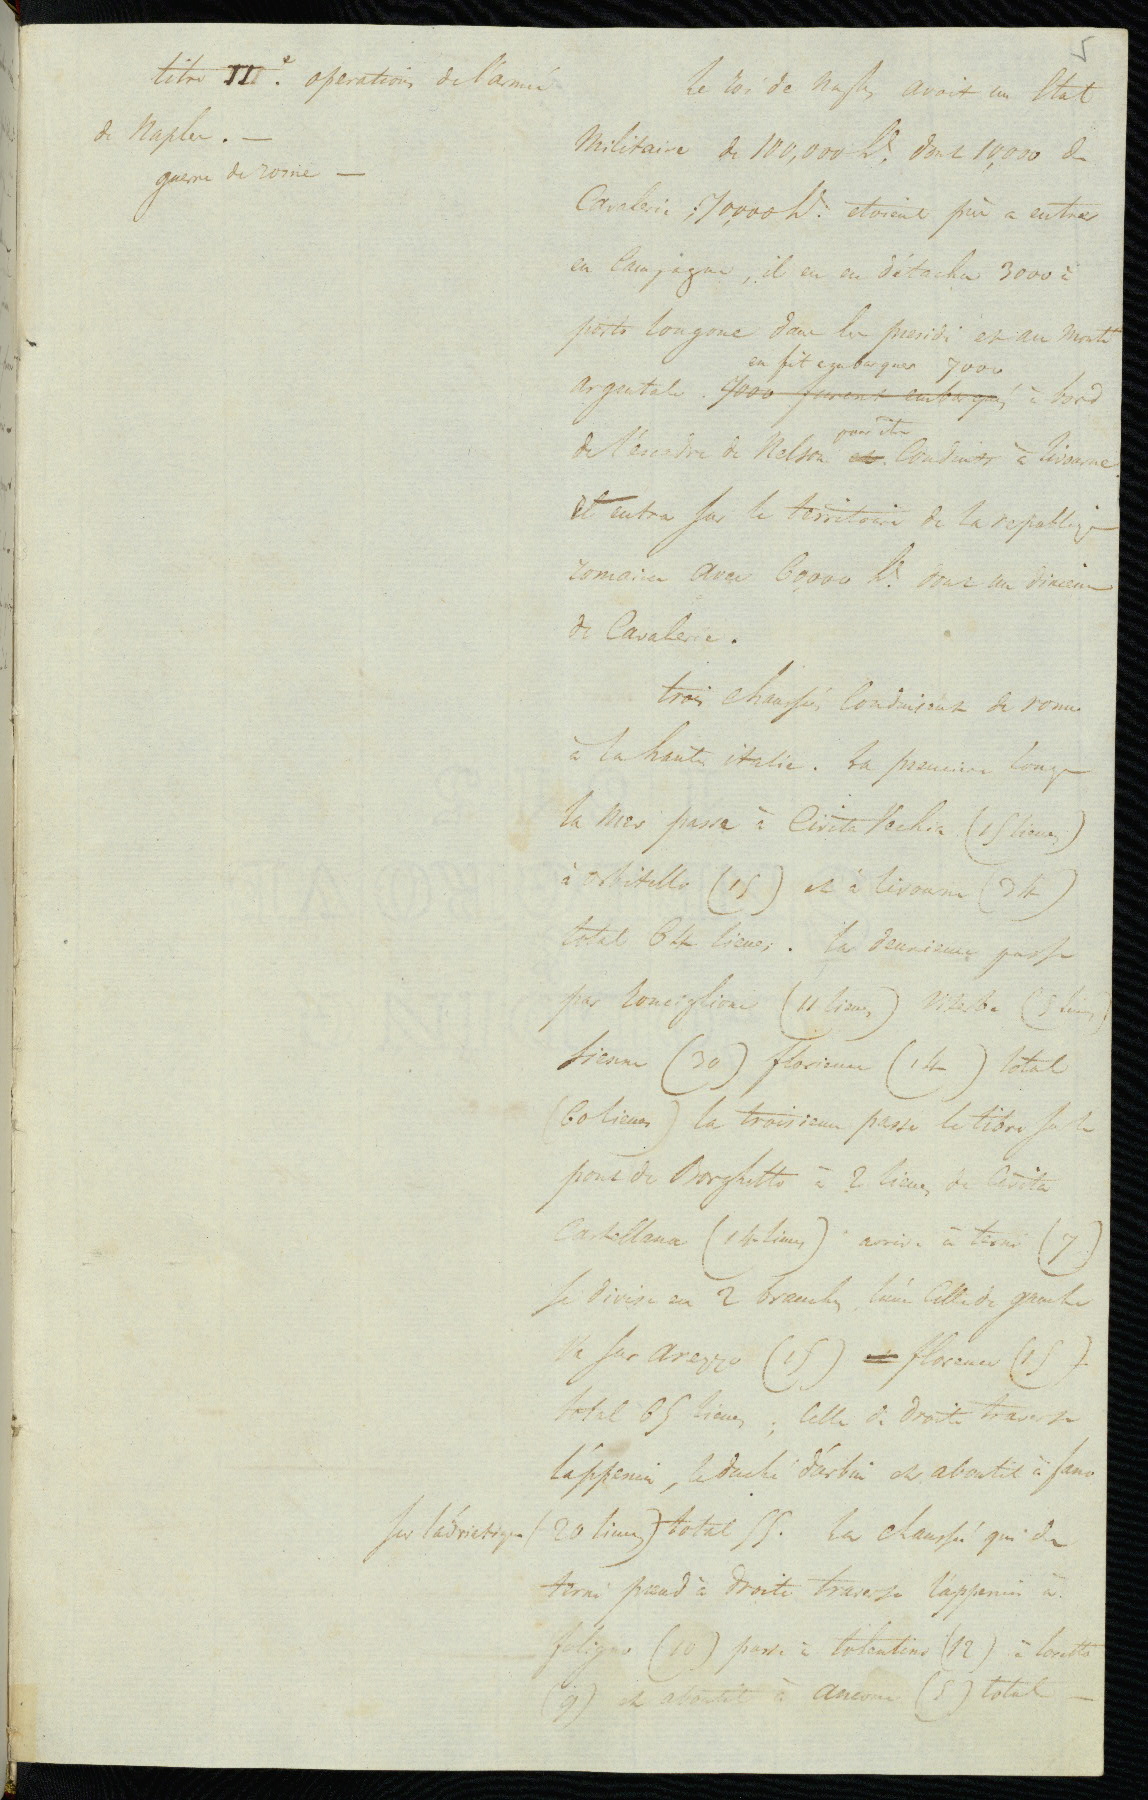 5
titre III.e operations de l'armée
de Naples. —
guerre de rome —
Le roi de Naples avoit un Etat
Militaire de 100,000 h.s dont 10,000 de
Cavalerie; 70,000 h.s etoient prêt a entrer
en Campagne, il en en détacha 3000 à
porto longone dans les presidi et au Monte
en fit embarquer 7000
argentale. 7000 furent embarqués à bord
pour être
de l'escadre de Nelson et Conduits à livourne
et entra sur le territoire de la republique
romaine avec 60,000 h.s dont un dixieme
de Cavalerie.
trois chaussées Conduisent de rome
à la haute italie. La premiere longe
la Mer passe à Civita Vechia (15 lieues)
à orbitello (15) et à livourne (34)
total 64 lieues. La deuxieme passe
par ronciglione (11 lieues) viterbe (5 lieues)
sienne (30) florence (14) total
(60 lieues) la troisieme passe le tibre sur le
pont de Borghetto à 2 lieues de Civita
Castellana (14 lieues) arrive à terni (7)
se divise en 2 branches, celle de gauche
va sur arezzo (15) et florence (15)
total 65 lieues; Celle de droite traverse
l'appenin, le duché d'urbin et aboutit à fano
sur l'adriatique (20 lieues) total 55. La chaussée qui de
terni prend à droite traverse l'appenin à
foligno (10) passe à tolentino (12) à loretto
(9) et aboutit à ancone (5) total —